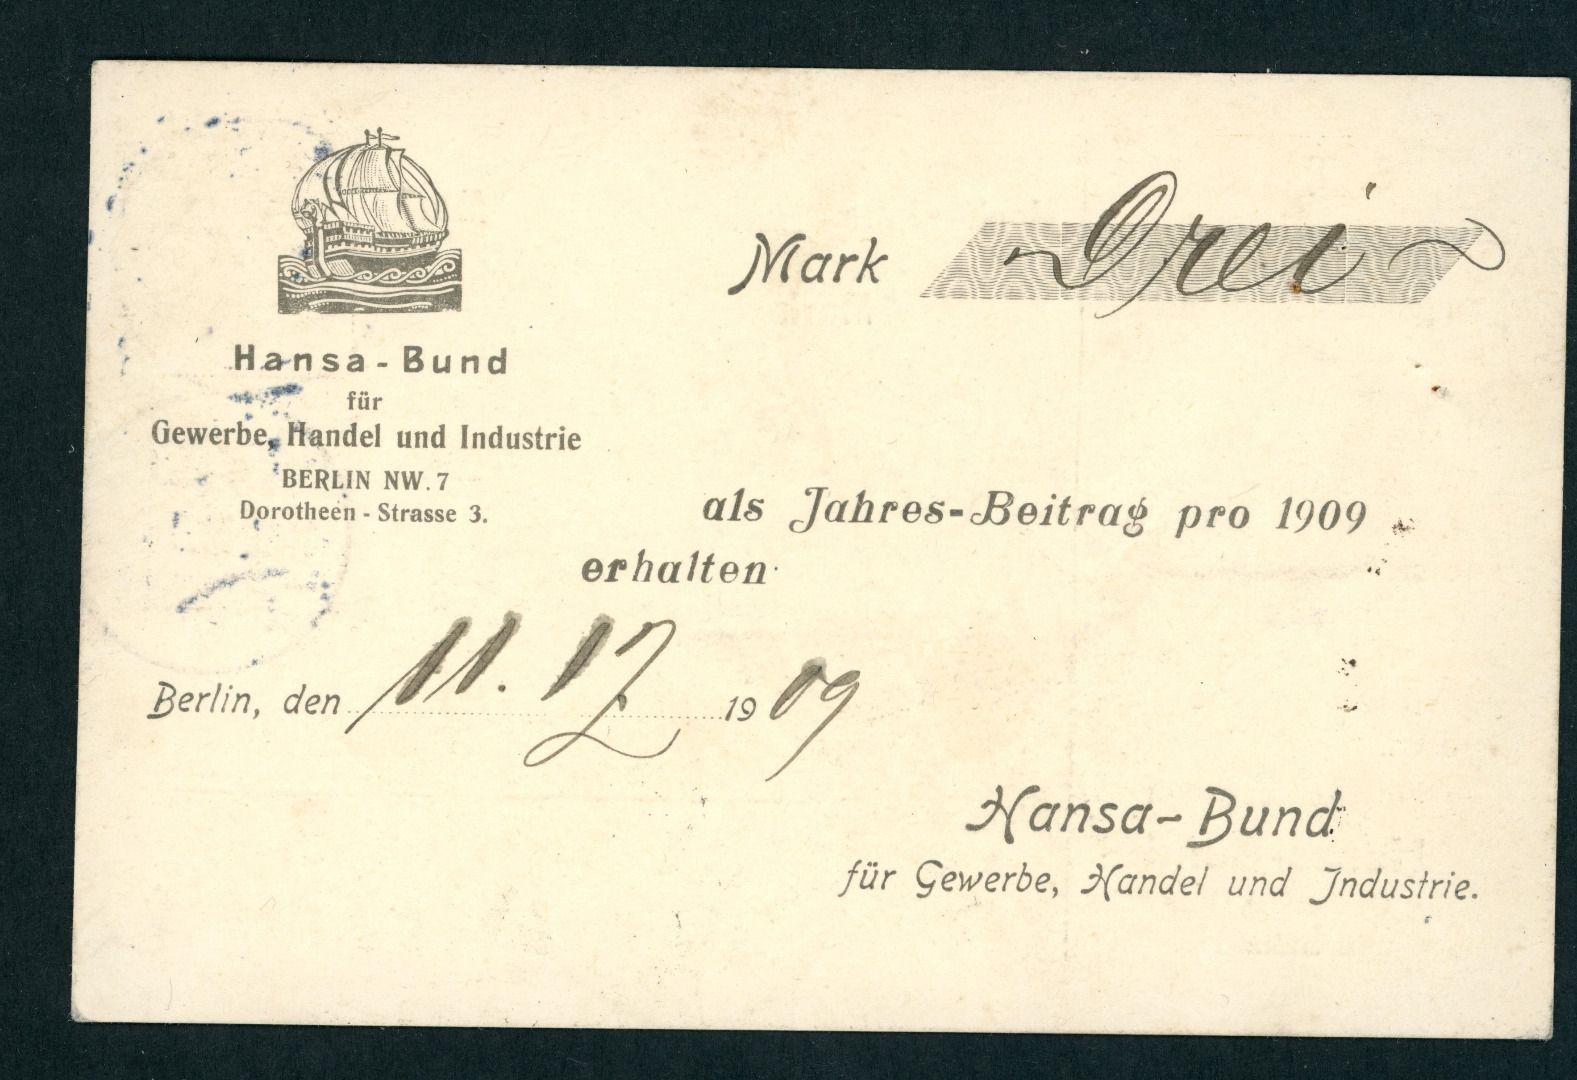 Hansa-Bund
für
Gewerbe, Handel und Industrie
BERLIN NW. 7
Dorotheen-Strasse 3.
Mark Drei
als Jahres-Beitrag pro 1909
erhalten
Berlin, den 11. 12 1909
Hansa-Bund
für Gewerbe, Handel und Industrie.